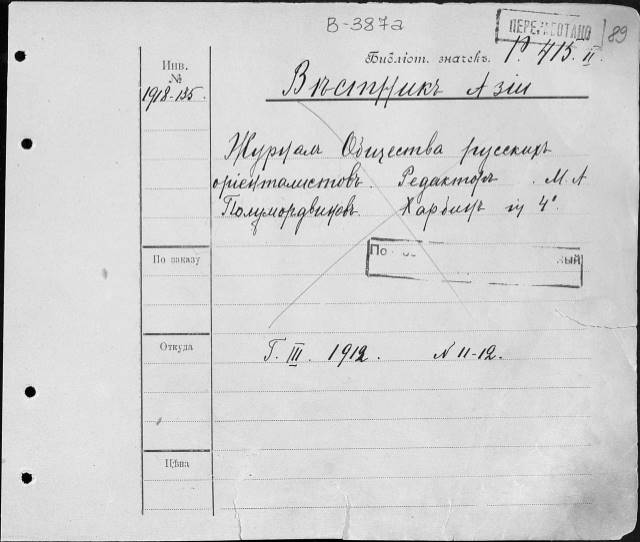 В-387а
ПЕРЕРАБОТАНО 89
Библіот. значекъ. Р. 415. II
Инв.
№
1918-135.
Вѣстникъ Азіи
Журналъ Общества русскихъ
оріенталистовъ. Редакторъ М. А
Полумордвиновъ. Харбинъ in 4°.
По
ный
По заказу
Откуда
Г. III. 1912. N 11-12.
Цѣна